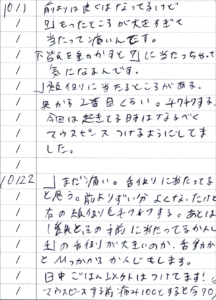 10/1 前よりは良くはなってるけど
もったところが大きすぎて
当たって痛いんです。
下唇を動かすと 7に当たっちゃって
気になるんです。
唇側に当たるところがある。
奥から2番目くらい。チクチクする。
今回は起きてる時はなるべく
マウスピースつけるようにしてま
した。
10/22 まだ痛い。舌側に当たってる
と思う。前よりずい分よくなったけど
左の頬側もチクチクする。あとは
その前に当たってるかんじ
の舌側が大きいのか、舌動かす
とひっかかるかんじもします。
日中ごはん以外はつけてます!
マウスピースする前 痛み100とすると今90